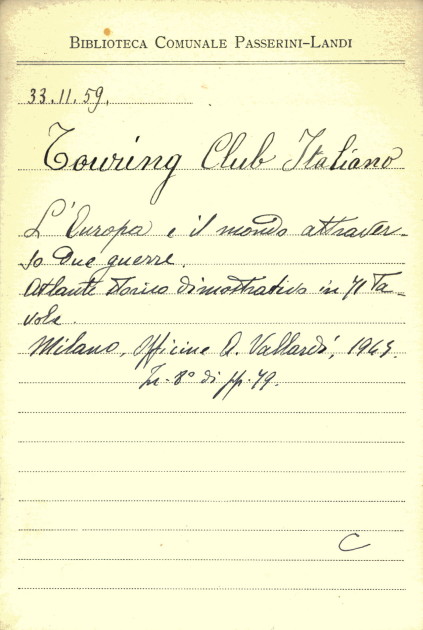 BIBLIOTECA COMUNALE PASSERINI-LANDI
33.11.59.
Touring Club Italiano
L'Europa e il mondo attraver-
so due guerre.
Atlante storico dimostrativo in 71 Ta-
vole.
Milano, Officine A. Vallardi, 1943.
In-8° di pp. 79.
C